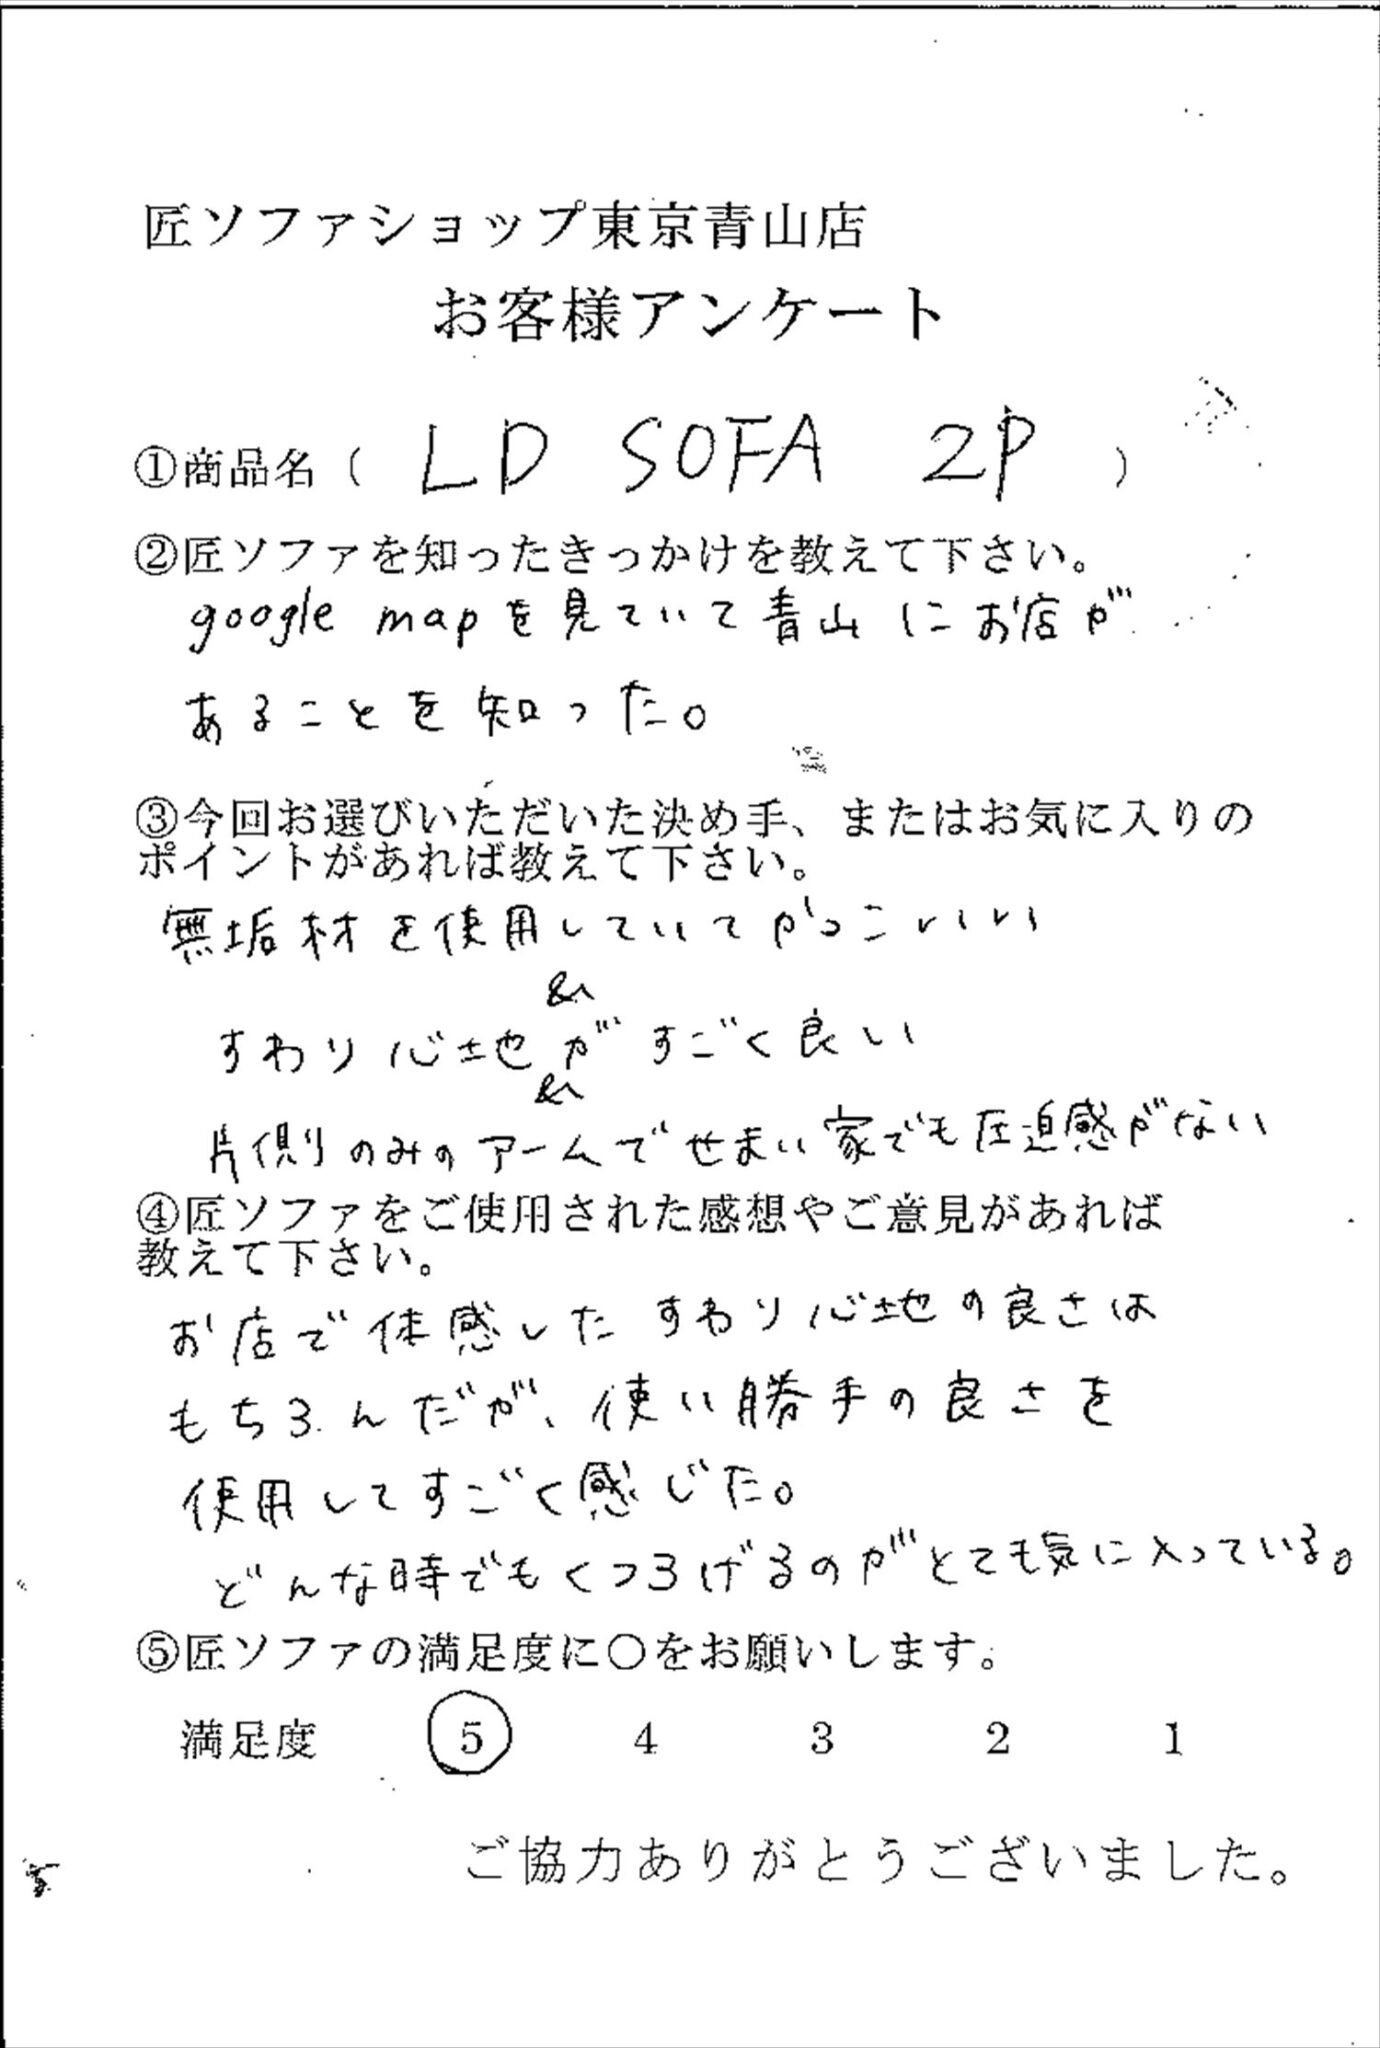 匠ソファショップ東京青山店
お客様アンケート
①商品名（ LD SOFA 2P ）
②匠ソファを知ったきっかけを教えて下さい。
google mapを見ていて青山にお店が
あることを知った。
③今回お選びいただいた決め手、またはお気に入りの
ポイントがあれば教えて下さい。
無垢材を使用していてかっこいいい
&
すわり心地がすごく良い
&
片側のみのアームでせまい家でも圧迫感がない
④匠ソファをご使用された感想やご意見があれば
教えて下さい。
お店で体感したすわり心地の良さは
もちろんだが、使い勝手の良さを
使用してすごく感じた。
どんな時でもくつろげるのがとても気に入っている。
⑤匠ソファの満足度に○をお願いします。
満足度 5 4 3 2 1
ご協力ありがとうございました。